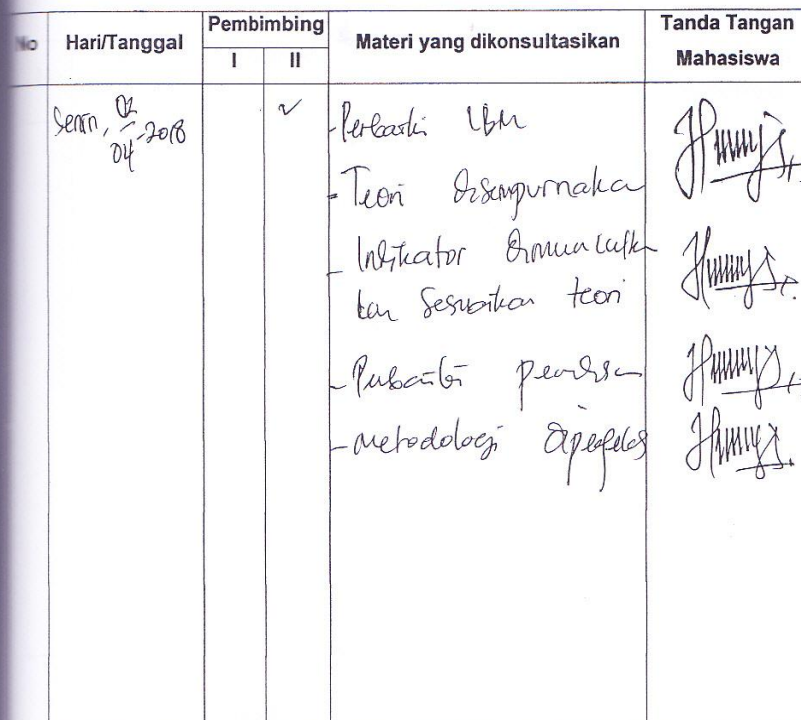 No Hari/Tanggal Pembimbing Materi yang dikonsultasikan Tanda Tangan
I II Mahasiswa
Senin, 02/04-2018 ✓ -Perbaiki LBM
-Teori disempurnaka
- Indikator dimunculkan
dan Sesuaikan teori
- Perbaiki penulisan
- metodologi diperjelas